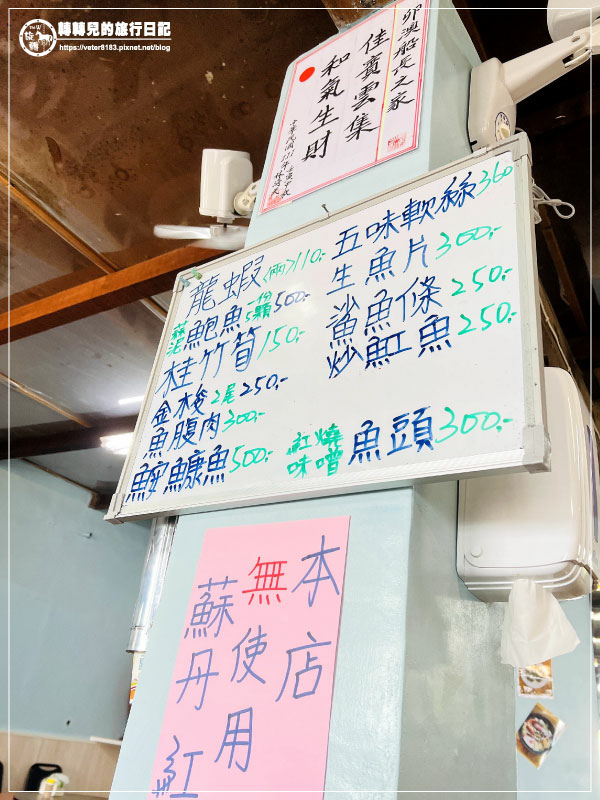 轉轉兒的旅行日記
https://veter8183.pixnet.net/blog
卯澳船長之家
佳賓雲集
和氣生財
龍蝦(兩)110.-
蒜泥鮑魚一份5顆500.-
桂竹筍150.-
金梭2尾250.-
魚腹肉300.-
鮟鱇魚500.-
五味軟絲360
生魚片300.-
鯊魚條250.-
炒魟魚250.-
紅燒味噌魚頭300.-
本店
無使用
蘇丹紅